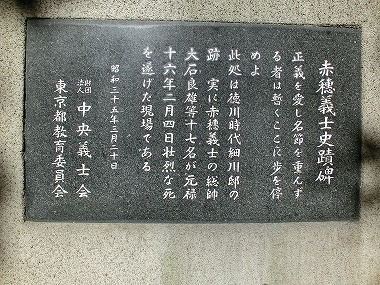 赤穂義士史蹟碑
正義を愛し名節を重んず
る者は暫くここに歩を停
めよ
此処は徳川時代細川邸の
跡 実に赤穂義士の総帥
大石良雄等十七名が元禄
十六年二月四日壮烈な死
を遂げた現場である
昭和三十五年三月二十日
財団法人 中央義士会
東京都教育委員会